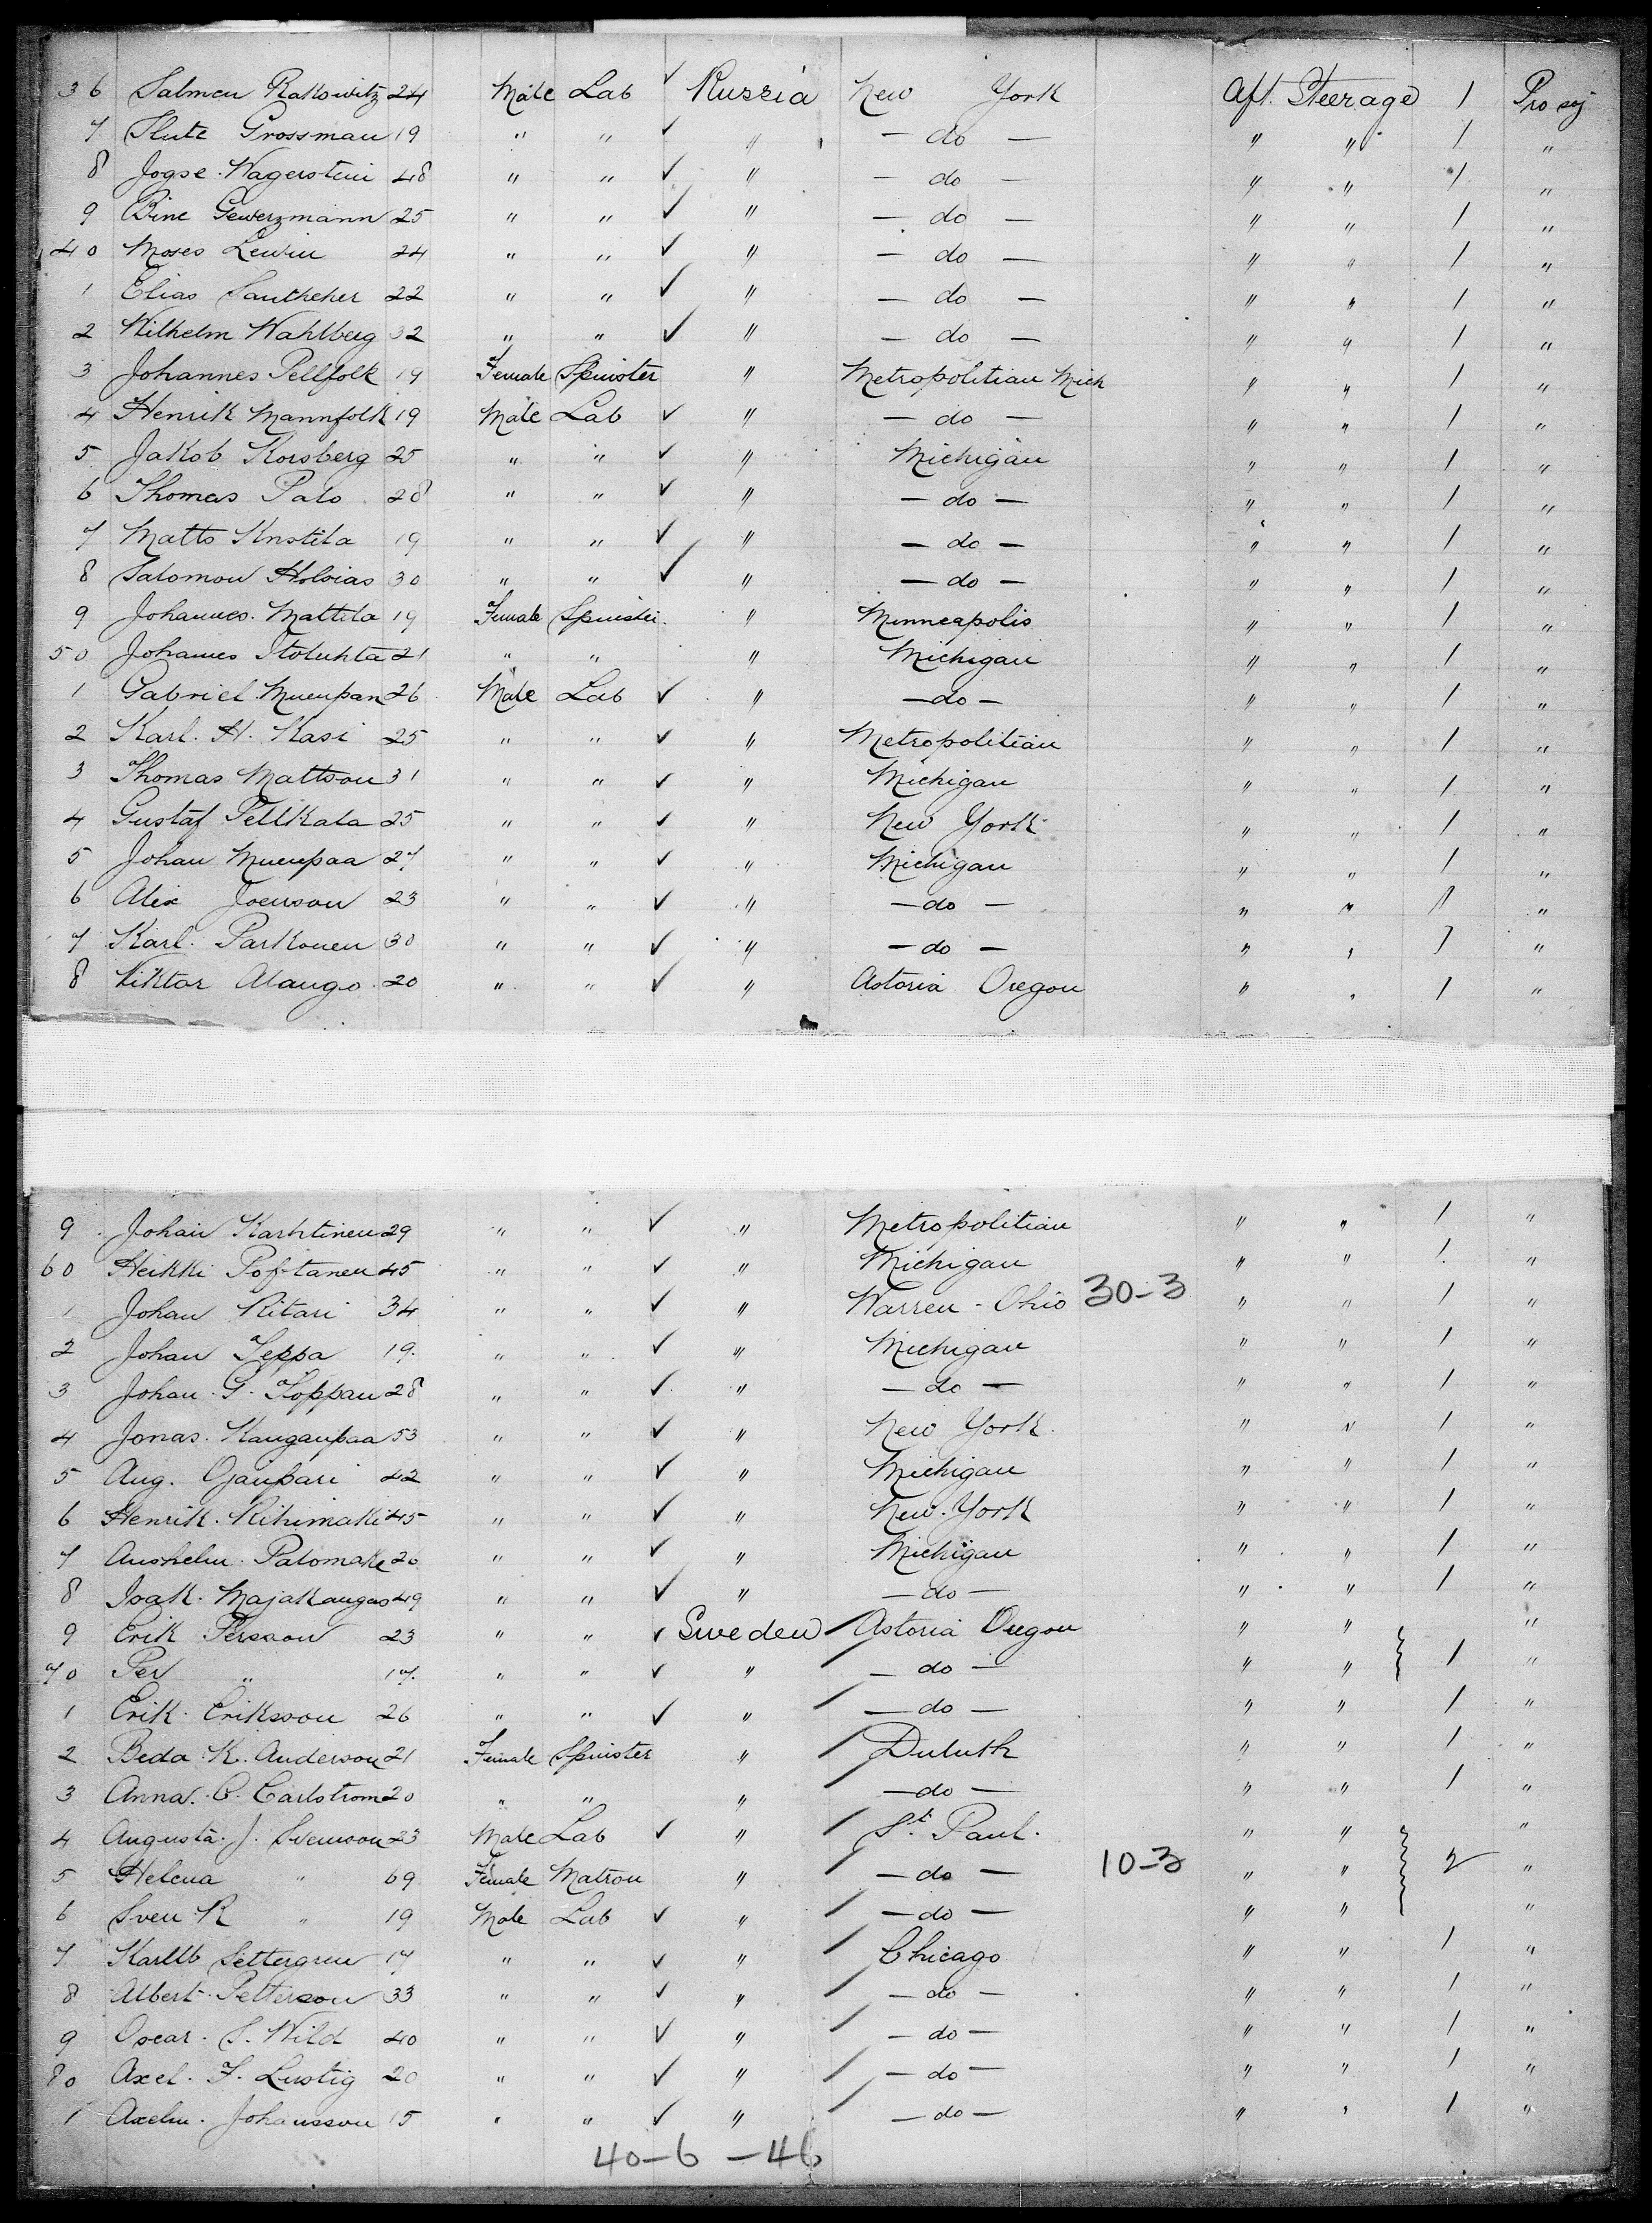 36 Salmen Rakowitz 24 Male Lab ✓ Russia New York Aft. Steerage 1 Pro soj
7 Slute Grossman 19 " " ✓ " — do — " " 1 "
8 Jogse Wagerstein 48 " " ✓ " — do — " " 1 "
9 Bine Gewerzmann 25 " " ✓ " — do — " " 1 "
40 Moses Lewin 24 " " ✓ " — do — " " 1 "
1 Elias Santheher 22 " " ✓ " — do — " " 1 "
2 Wilhelm Wahlberg 32 " " ✓ " — do — " " 1 "
3 Johannes Pellfolk 19 Female Spinster " Metropolitian Mich " " 1 "
4 Henrik Mannfolk 19 Male Lab ✓ " — do — " " 1 "
5 Jakob Korsberg 25 " " ✓ " Michigan " " 1 "
6 Thomas Palo 28 " " ✓ " — do — " " 1 "
7 Matts Knstila 19 " " ✓ " — do — " " 1 "
8 Salomon Holvias 30 " " ✓ " — do — " " 1 "
9 Johannes Mattila 19 Female Spinster " Minneapolis " " 1 "
50 Johannes Itoluhta 21 " " " Michigan " " 1 "
1 Gabriel Muenpan 26 Male Lab ✓ " — do — " " 1 "
2 Karl. H. Kasi 25 " " ✓ " Metropolitian " " 1 "
3 Thomas Mattson 31 " " ✓ " Michigan " " 1 "
4 Gustaf Pellkala 25 " " ✓ " New York " " 1 "
5 Johan Muenpaa 27 " " ✓ " Michigan " " 1 "
6 Alex Joenson 23 " " ✓ " — do — " " 1 "
7 Karl. Parkonen 30 " " ✓ " — do — " " 1 "
8 Viktor Alango 20 " " ✓ " Astoria Oregon " " 1 "
9 Johan Karhtinen 29 " " ✓ " Metropolitian " " 1 "
60 Heikki Poftanen 45 " " ✓ " Michigan " " 1 "
1 Johan Ritari 34 " " ✓ " Warren - Ohio 30-3 " " 1 "
2 Johan Seppa 19. " " ✓ " Michigan " " 1 "
3 Johan. G. Koppan 28 " " ✓ " — do — " " 1 "
4 Jonas. Kanganpaa 53 " " ✓ " New York. " " 1 "
5 Aug. Ojanpari 42 " " ✓ " Michigan " " 1 "
6 Henrik. Rihimaki 45 " " ✓ " New. York " " 1 "
7 Anshelm. Palomake 26 " " ✓ " Michigan " " 1 "
8 Isak. Majakangas 49 " " ✓ " — do — " " 1 "
9 Erik Persson 23 " " ✓ Sweden Astoria Oregon " " "
70 Per " 17. " " ✓ " — do — " " 1 "
1 Erik. Eriksson 26 " " ✓ " — do — " " 1 "
2 Beda. K. Anderson 21 Female Spinster " Duluth " " 1 "
3 Anna. C. Carlstrom 20 " " " — do — " " 1 "
4 Augusta. J. Svensson 23 Male Lab ✓ " St. Paul. " " "
5 Helena " 69 Female Matron " — do — 10-3 " " 2 "
6 Sven R " 19 Male Lab ✓ " — do — " " "
7 Settergren 17 " " ✓ " Chicago " " 1 "
8 Albert. Petterson 33 " " ✓ " — do — " " 1 "
9 Oscar. S. Wild 40 " " ✓ " — do — " " 1 "
80 Axel. F. Lustig 20 " " ✓ " — do — " " 1 "
1 Axelm. Johansson 15 " " ✓ " — do — " " 1 "
40-6 -46